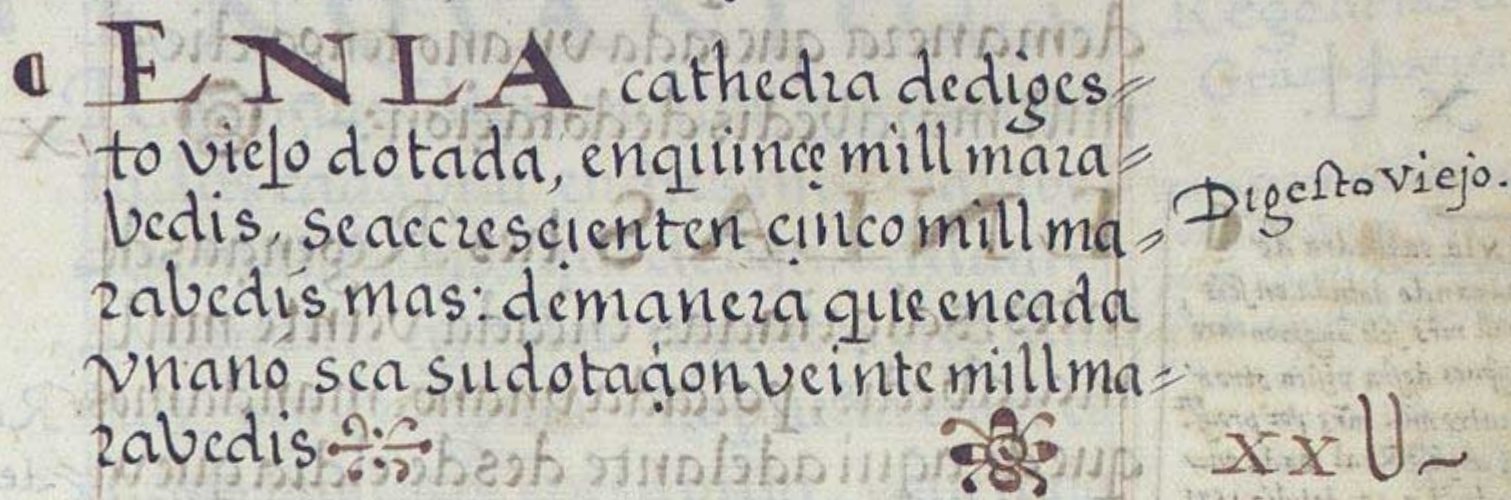 ¶ EN LA cathedra de diges=
to viejo dotada, en quinçe mill mara=
bedis, se accresçienten çinco mill ma=
rabedis mas: de manera que en cada
vn año sea su dotaçion veinte mill ma=
rabedis
Digesto Viejo.
xxU~